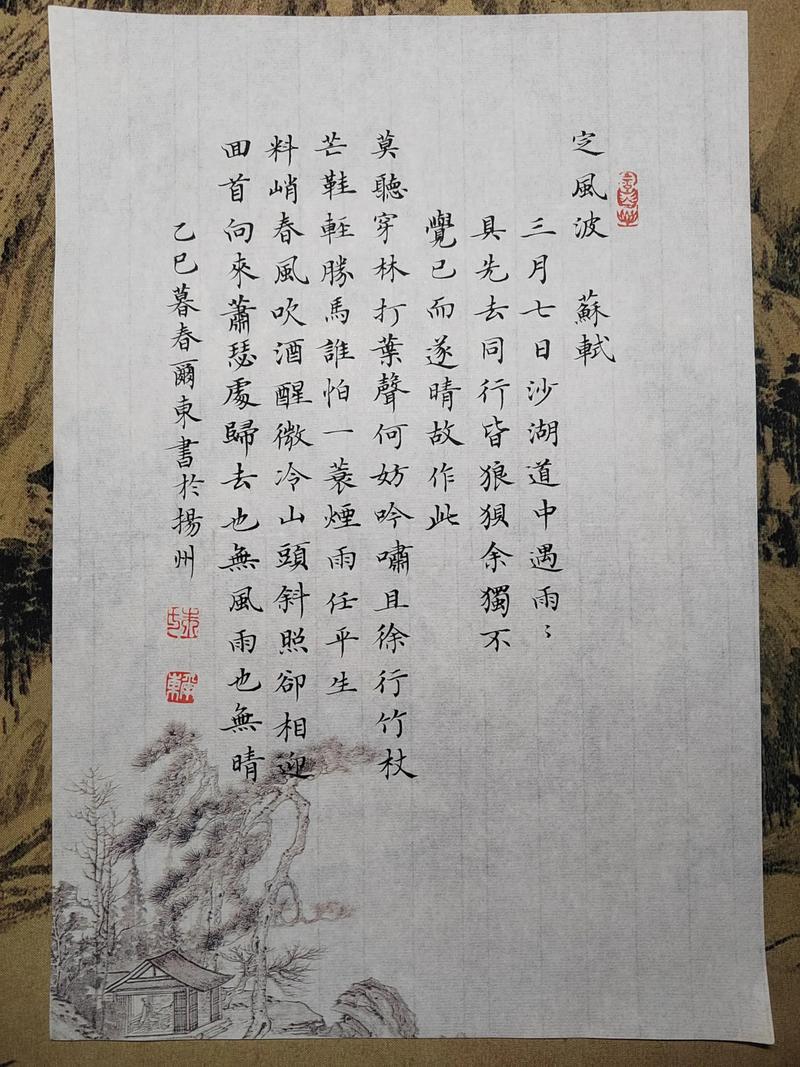 定風波 蘇軾
三月七日沙湖道中遇雨〻
具先去同行皆狼狽余獨不
覺已而遂晴故作此
莫聽穿林打葉聲何妨吟嘯且徐行竹杖
芒鞋輕勝馬誰怕一蓑煙雨任平生
料峭春風吹酒醒微冷山頭斜照卻相迎
回首向來蕭瑟處歸去也無風雨也無晴
乙巳暮春爾東書於揚州